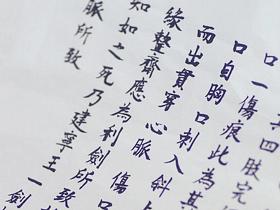 四肢完
口一傷痕此為其
口自胸口刺入斜上
而出貫穿心脈傷口
緣整齊應為利劍所致
知如之死乃建寧王一劍
脈所致